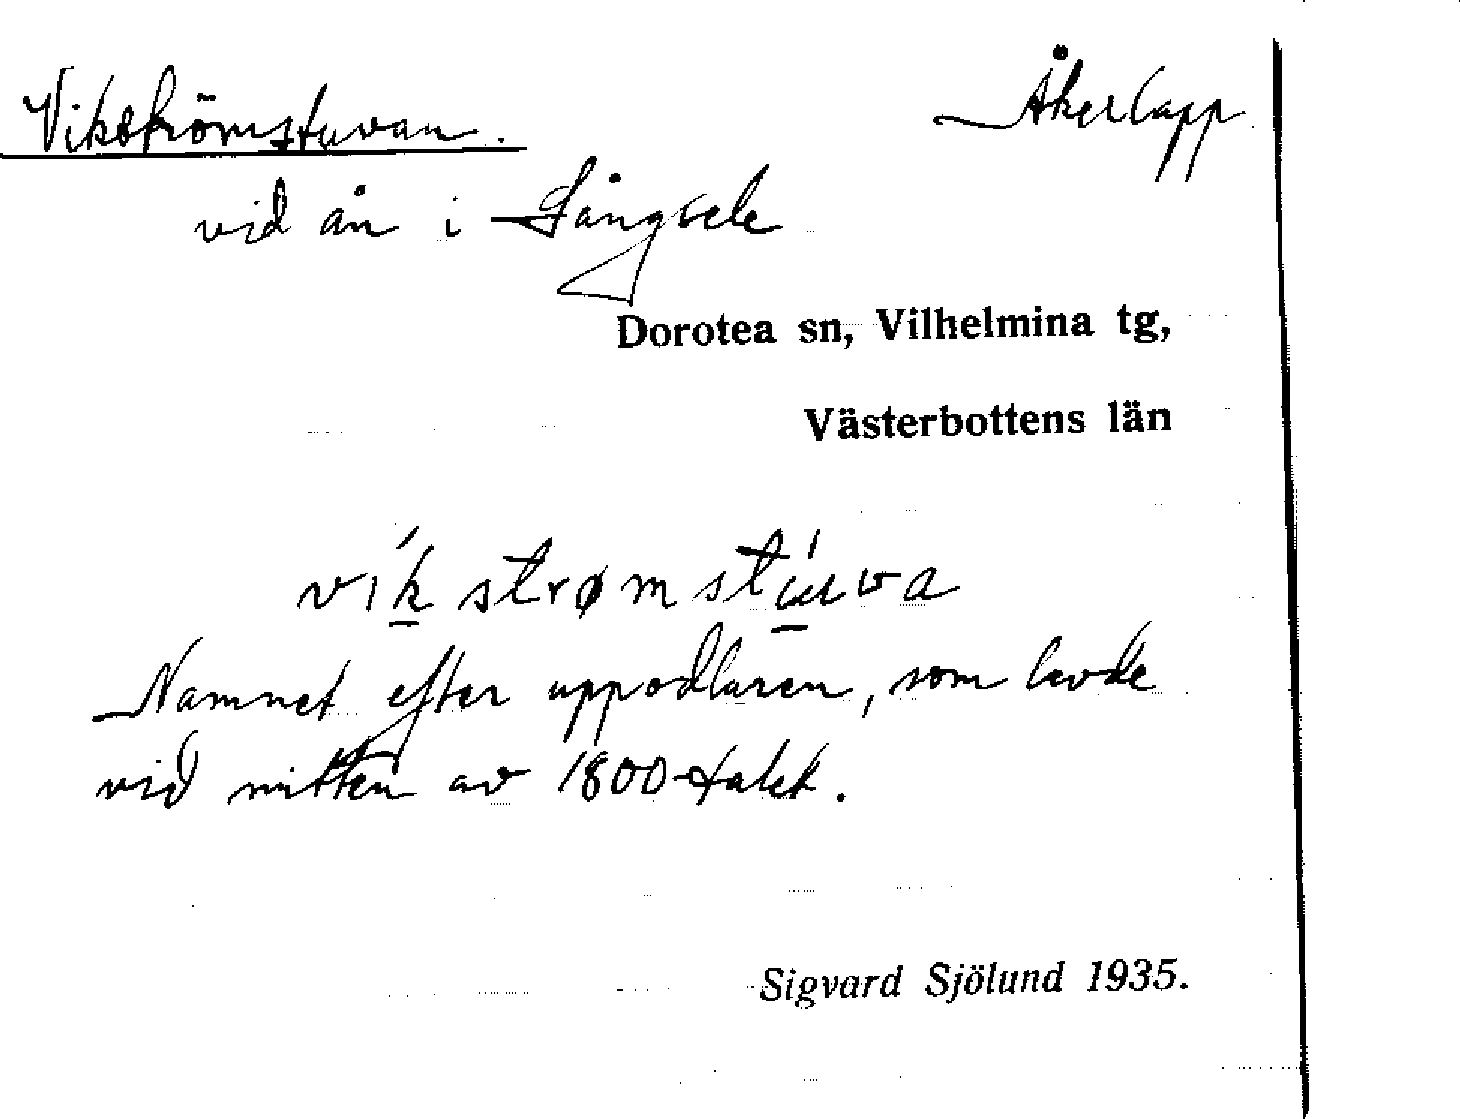 Vikströmstuvan. Åkerlapp
vid ån i Långsele
Dorotea sn, Vilhelmina tg,
Västerbottens län
vík strømstúuva
Namnet efter uppodlaren, som levde
vid mitten av 1800-talet.
Sigvard Sjölund 1935.